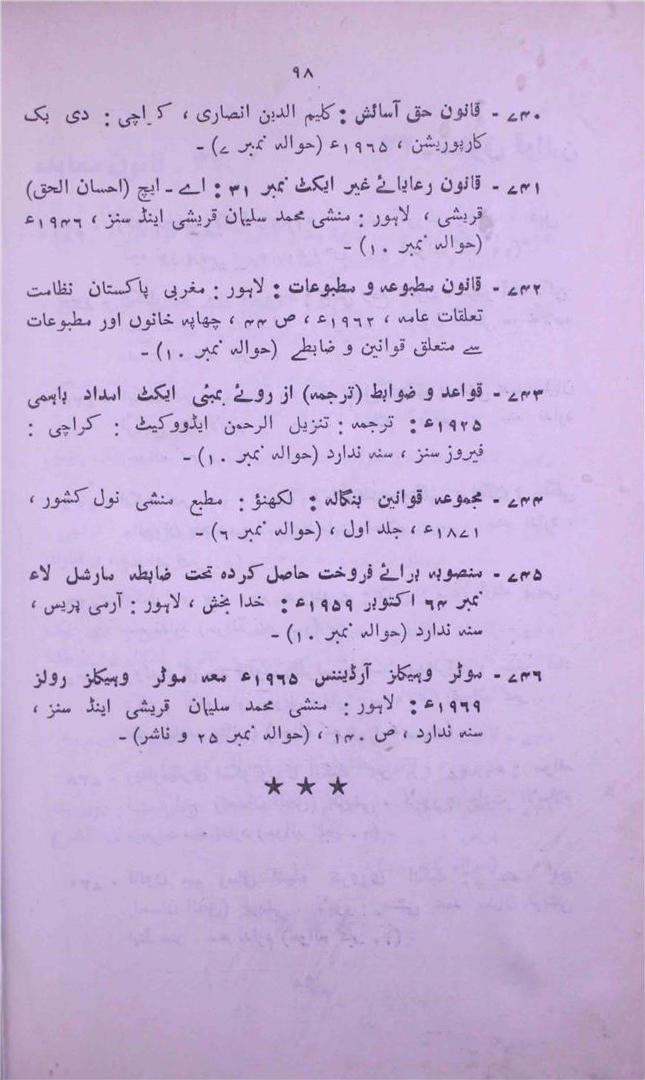 ۹۸
۷۴۰ - قانون حق آسائش : کلیم الدین انصاری ، کراچی : دی بک
کارپوریشن ، ۱۹۶۵ء (حوالہ نمبر ۷) -
۷۴۱ - قانون رعایائے غیر ایکٹ نمبر ۳۱ : اے - ایچ (احسان الحق)
قریشی ، لاہور : منشی محمد سلیمان قریشی اینڈ سنز ، ۱۹۴۶ء
(حوالہ نمبر ۱۰) -
۷۴۲ - قانون مطبوعہ و مطبوعات : لاہور : مغربی پاکستان نظامت
تعلقات عامہ ، ۱۹۶۲ء ، ص ۴۴ ، چھاپہ خانوں اور مطبوعات
سے متعلق قوانین و ضابطے (حوالہ نمبر ۱۰) -
۷۴۳ - قواعد و ضوابط (ترجمہ) از روئے بمبئی ایکٹ امداد باہمی
۱۹۲۵ء : ترجمہ : تنزیل الرحمن ایڈووکیٹ : کراچی :
فیروز سنز ، سنہ ندارد (حوالہ نمبر ۱۰) -
۷۴۴ - مجموعہ قوانین بنگالہ : لکھنؤ : مطبع منشی نول کشور ،
۱۸۷۱ء ، جلد اول ، (حوالہ نمبر ۶) -
۷۴۵ - منصوبہ برائے فروخت حاصل کردہ تحت ضابطہ مارشل لاء
نمبر ۶۴ اکتوبر ۱۹۵۹ء : خدا بخش ، لاہور : آرمی پریس ،
سنہ ندارد (حوالہ نمبر ۱۰) -
۷۴۶ - موٹر وہیکلز آرڈیننس ۱۹۶۵ء معہ موٹر وہیکلز رولز
۱۹۶۹ء : لاہور : منشی محمد سلیمان قریشی اینڈ سنز ،
سنہ ندارد ، ص ۱۴۰ ، (حوالہ نمبر ۲۵ و ناشر) -
★ ★ ★